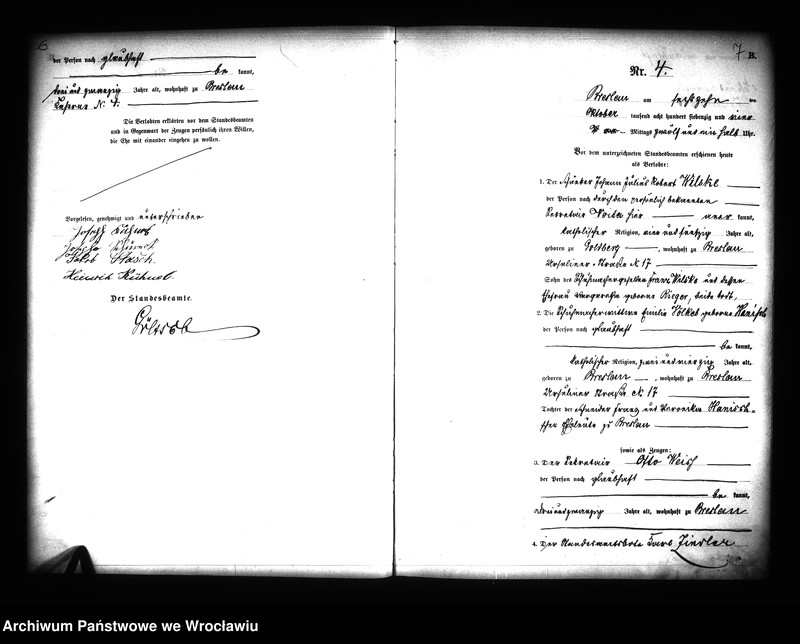 6
der Person nach glaubhaft
be kannt,
drei und zwanzig Jahre alt, wohnhaft zu Breslau
N. 4.
Die Verlobten erklärten vor dem Standesbeamten
und in Gegenwart der Zeugen persönlich ihren Willen,
die Ehe mit einander eingehen zu wollen.
Vorgelesen, genehmigt und unterschrieben
Joseph
Josepha
Jakob
Heinrich Kühnel.
Der Standesbeamte.
7 B.
Nr. 4.
Breslau am sechszehn ten
Oktober tausend acht hundert siebenzig und vier
Mittags zwölf und ein halb Uhr.
Vor dem unterzeichneten Standesbeamten erschienen heute
als Verlobte:
1. Der Johann Julius Robert Wilske
der Person nach durch den persönlich bekannten
Sekretair hier aner kannt,
katholischer Religion, vier und funfzig Jahre alt,
geboren zu Goldberg, wohnhaft zu Breslau
Ursuliner Straße N 17
Sohn des Schuhmachergesellen Franz Wilske und dessen
Ehefrau geborene Rieger, beide todt,
2. Die Schuhmacherwittwe Emilie Völkel geborene Hanisch
der Person nach glaubhaft
be kannt,
katholischer Religion, zwei und vierzig Jahre alt,
geboren zu Breslau, wohnhaft zu Breslau
Ursuliner Straße N 17
Tochter der Schneider Franz und Veronika Hanisch-
schen Eheleute zu Breslau
sowie als Zeugen:
3. Der Sekretair Otto Weiß
der Person nach glaubhaft
be kannt,
Jahre alt, wohnhaft zu Breslau
4. Der Standesamtsbote
Archiwum Państwowe we Wrocławiu